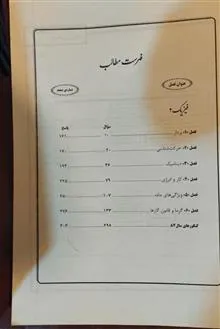 فهرست مطالب
عنوان فصل
شماره‌ی صفحه
فیزیک ۲
سؤال پاسخ
فصل ۱: بردار ۱۰ ۱۶۱
فصل ۲: حرکت‌شناسی ۲۰ ۱۷۰
فصل ۳: دینامیک ۴۶ ۱۹۴
فصل ۴: کار و انرژی ۷۹ ۲۲۵
فصل ۵: ویژگی‌های ماده ۱۰۷ ۲۵۰
فصل ۶: گرما و قانون گازها ۱۳۳ ۲۷۶
کنکورهای سال ۸۲ ۲۹۸ ۳۰۳